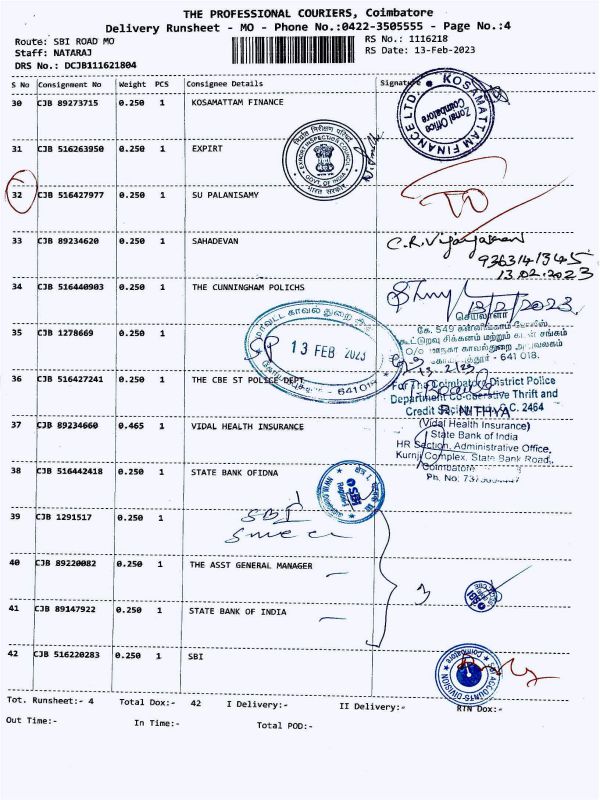 THE PROFESSIONAL COURIERS, Coimbatore
Delivery Runsheet - MO - Phone No.:0422-3505555 - Page No.:4
Route: SBI ROAD MO
RS No.: 1116218
Staff: NATARAJ
RS Date: 13-Feb-2023
DRS No.: DCJB111621804
S No Consignment No Weight PCS Consignee Details Signature
30 CJB 89273715 0.250 1 KOSAMATTAM FINANCE
KOSAMATTAM FINANCE LTD.
Zonal Office
Coimbatore
31 CJB 516263950 0.250 1 EXPIRT
EXPORT INSPECTION COUNCIL
GOVT OF INDIA
भारत सरकार
32 CJB 516427977 0.250 1 SU PALANISAMY
33 CJB 89234620 0.250 1 SAHADEVAN
9363141345
13.02.2023
34 CJB 516440903 0.250 1 THE CUNNINGHAM POLICHS
12/2/2023
35 CJB 1278669 0.250 1
13 FEB 2023
641018
641 018.
36 CJB 516427241 0.250 1 THE CBE ST POLICE DEPT
For The Coimbatore District Police
Department Co-operative Thrift and
Credit
C. 2464
37 CJB 89234660 0.465 1 VIDAL HEALTH INSURANCE
R. NITHYA
(Vidal Health Insurance)
State Bank of India
HR Section, Administrative Office,
Kurnji Complex, State Bank Road,
Coimbatore
Ph. No:
38 CJB 516442418 0.250 1 STATE BANK OFIDNA
SBI
39 CJB 1291517 0.250 1
SBI
40 CJB 89220082 0.250 1 THE ASST GENERAL MANAGER
3
SBI
41 CJB 89147922 0.250 1 STATE BANK OF INDIA
42 CJB 516220283 0.250 1 SBI
Tot. Runsheet:- 4 Total Dox:- 42 I Delivery:- II Delivery:- RTN Dox:-
Out Time:- In Time:- Total POD:-